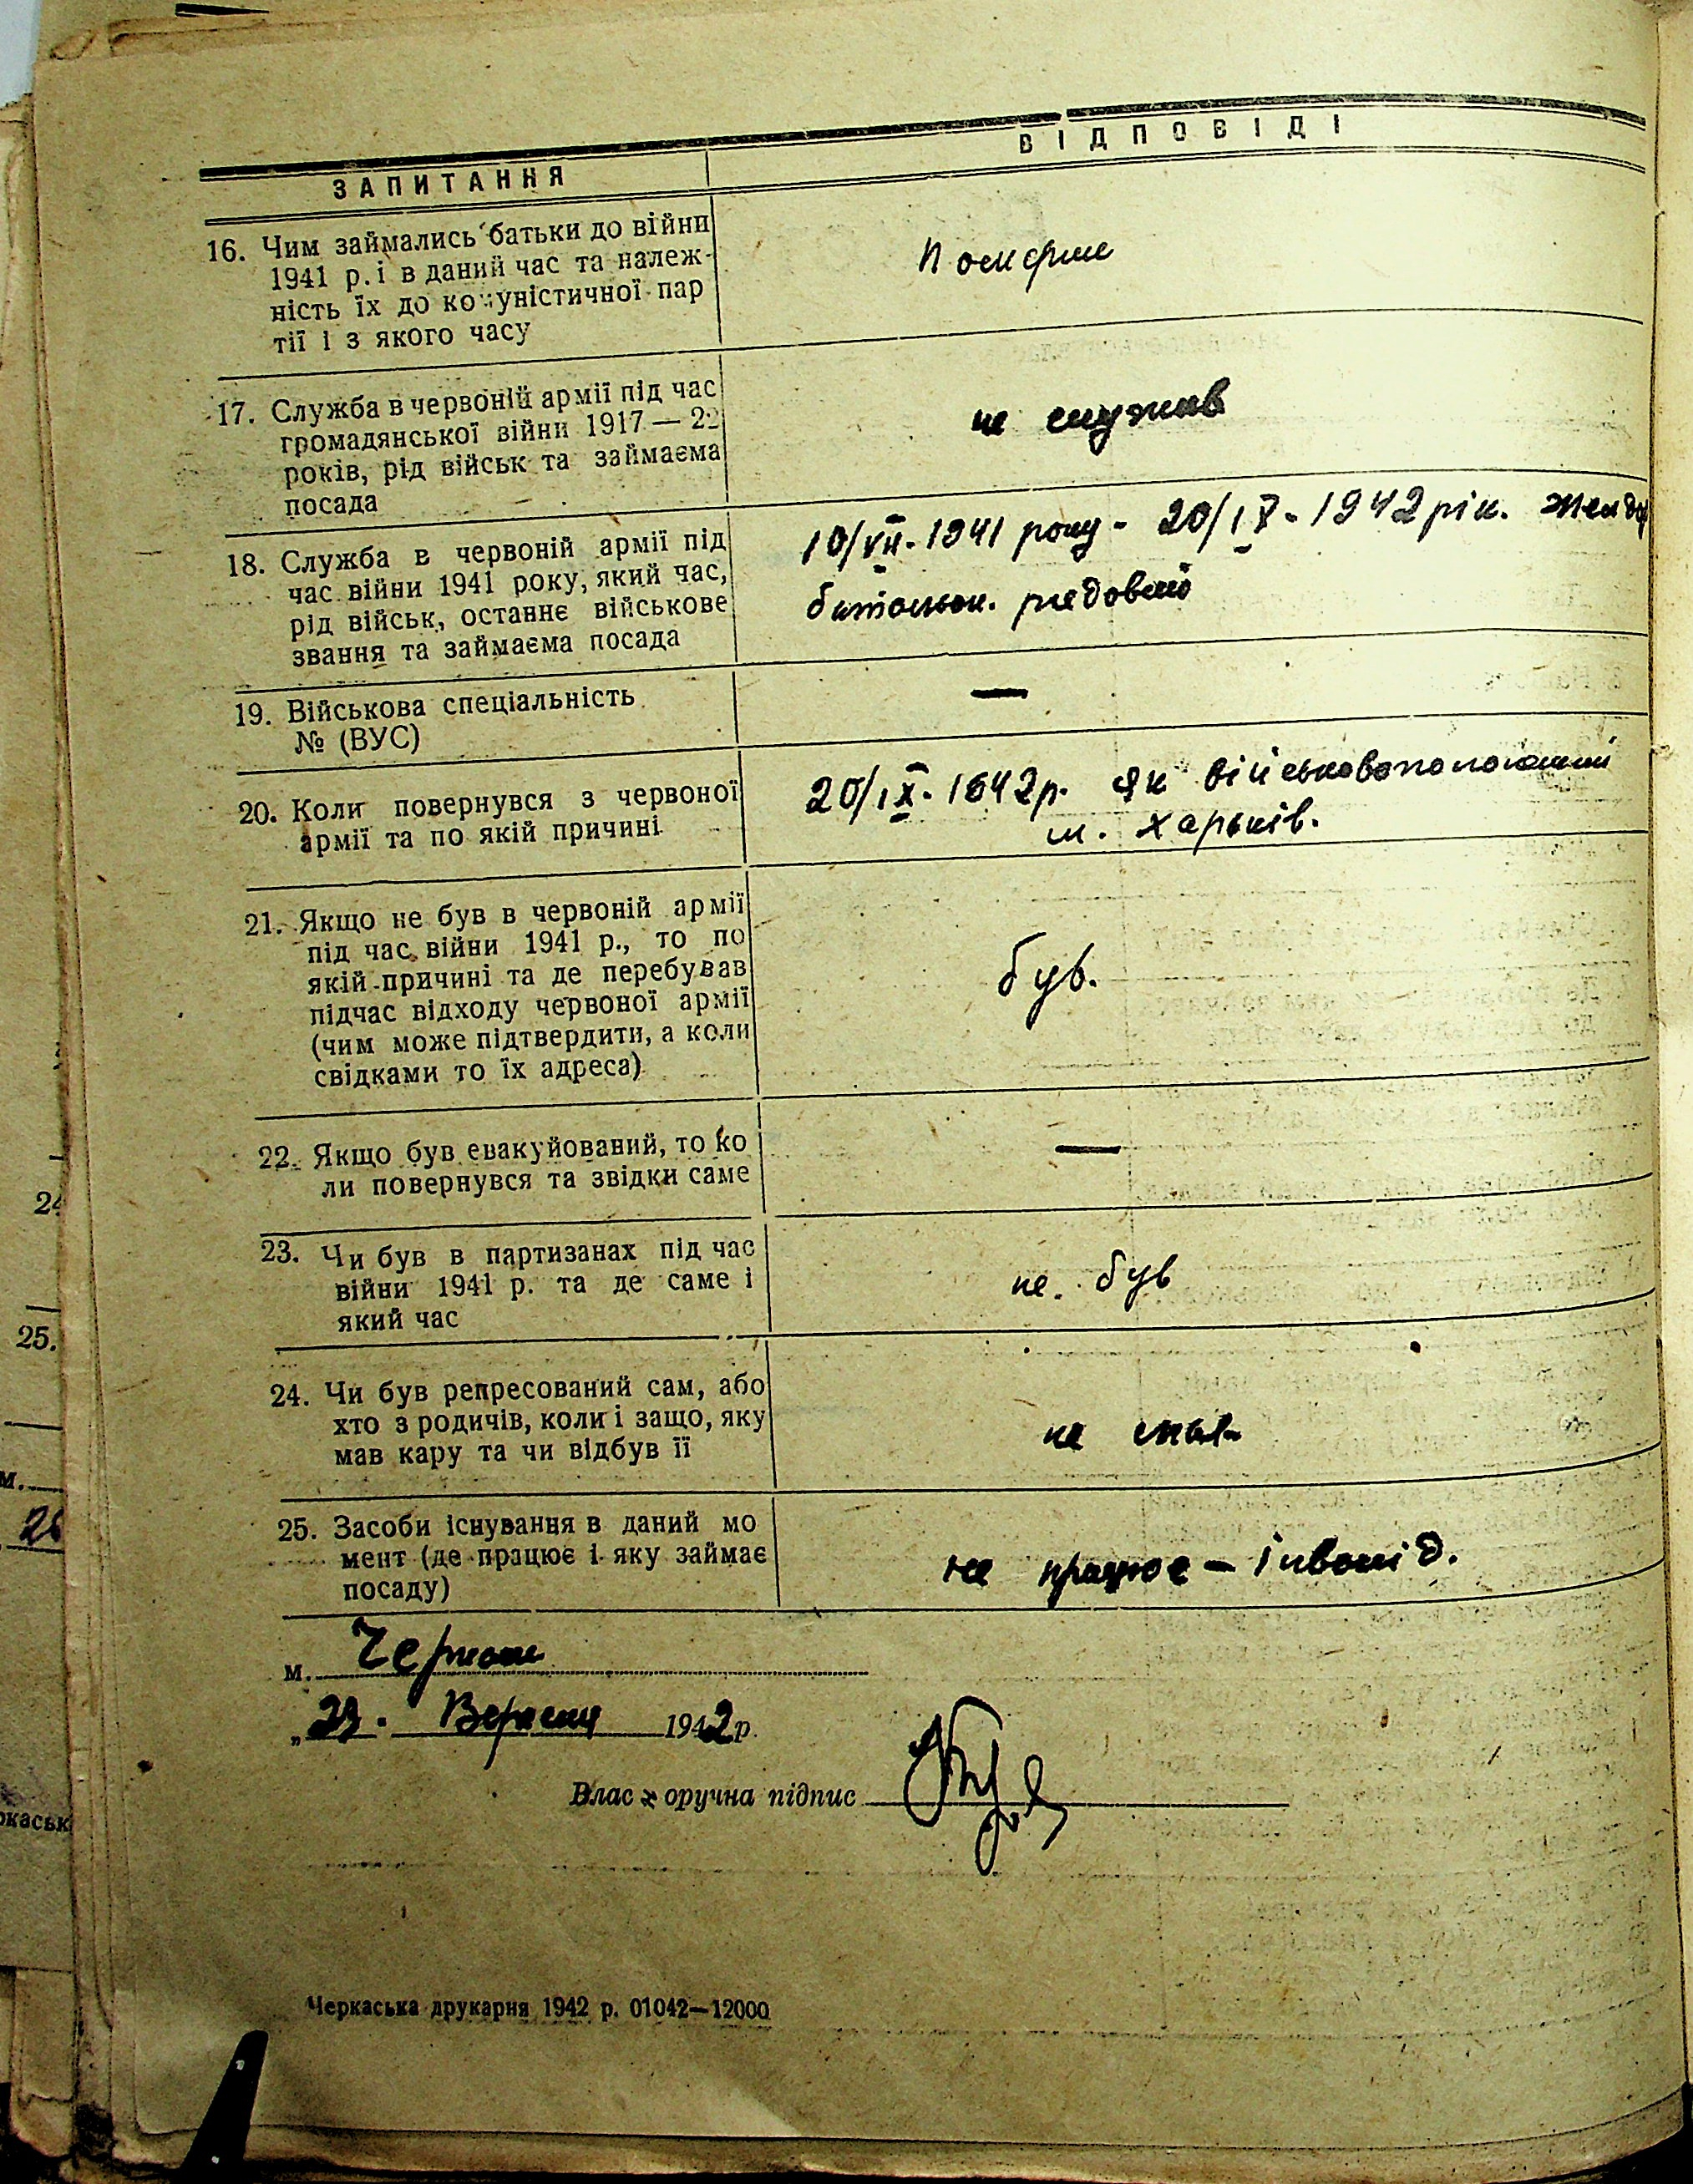 ЗАПИТАННЯ
ВІДПОВІДІ
16. Чим займались батьки до війни
1941 р. і в даний час та належ-
ність їх до комуністичної пар
тії і з якого часу
Померли
17. Служба в червоній армії під час
громадянської війни 1917 — 22
років, рід військ та займаєма
посада
не служив
18. Служба в червоній армії під
час війни 1941 року, який час,
рід військ, останнє військове
звання та займаєма посада
10/VII-1941 року - 20/IX-1942 рік.
батальон. рядовий
19. Військова спеціальність
№ (ВУС)
—
20. Коли повернувся з червоної
армії та по якій причині
20/IX-1942р. як військовополонений
м. Харьків.
21. Якщо не був в червоній армії
під час війни 1941 р., то по
якій причині та де перебував
підчас відходу червоної армії
(чим може підтвердити, а коли
свідками то їх адреса)
був.
22. Якщо був евакуйований, то ко
ли повернувся та звідки саме
—
23. Чи був в партизанах під час
війни 1941 р. та де саме і
який час
не був
24. Чи був репресований сам, або
хто з родичів, коли і защо, яку
мав кару та чи відбув її
не
25. Засоби існування в даний мо
мент (де працює і яку займає
посаду)
не працює - інвалід.
м. Черкаси
„23. Вересня 1942 р.
Влас оручна підпис
Черкаська друкарня 1942 р. 01042—12000
24
25.
м.
26
ркаськ